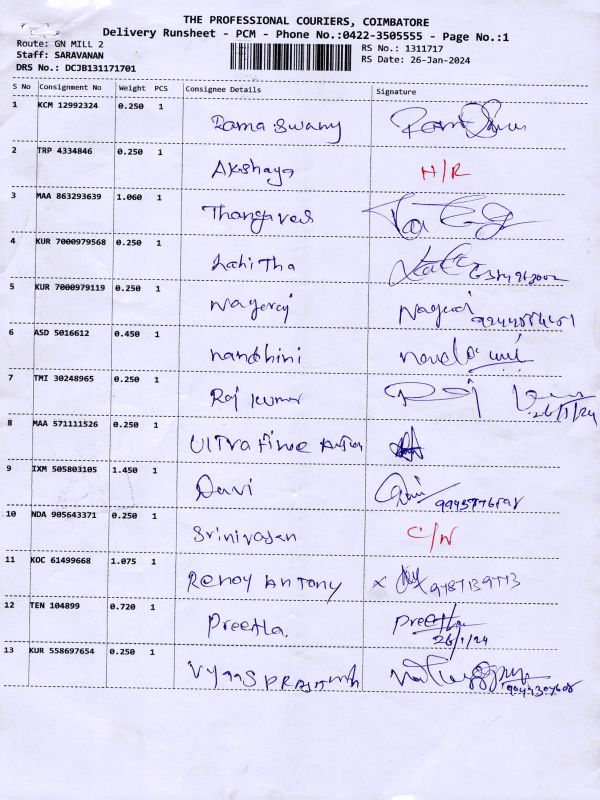 THE PROFESSIONAL COURIERS, COIMBATORE
Delivery Runsheet - PCM - Phone No.:0422-3505555 - Page No.:1
Route: GN MILL 2
Staff: SARAVANAN
DRS No.: DCJB131171701
RS No.: 1311717
RS Date: 26-Jan-2024
S No Consignment No Weight PCS Consignee Details Signature
1 KCM 12992324 0.250 1
Rama Swamy
2 TRP 4334846 0.250 1
Akshaya H/R
3 MAA 863293639 1.060 1
Thangavel
4 KUR 7000979568 0.250 1
Lalitha
5 KUR 7000979119 0.250 1
Nageraj
6 ASD 5016612 0.450 1
nandhini
7 TMI 30248965 0.250 1
Raj kumar 26/1/24
8 MAA 571111526 0.250 1
Ultra Fine
9 IXM 505803105 1.450 1
Davi
10 NDA 905643371 0.250 1
Srinivasan C/N
11 KOC 61499668 1.075 1
Renoy Antony x
12 TEN 104899 0.720 1
Preetha. Preetha
26/1/24
13 KUR 558697654 0.250 1
Vyaas